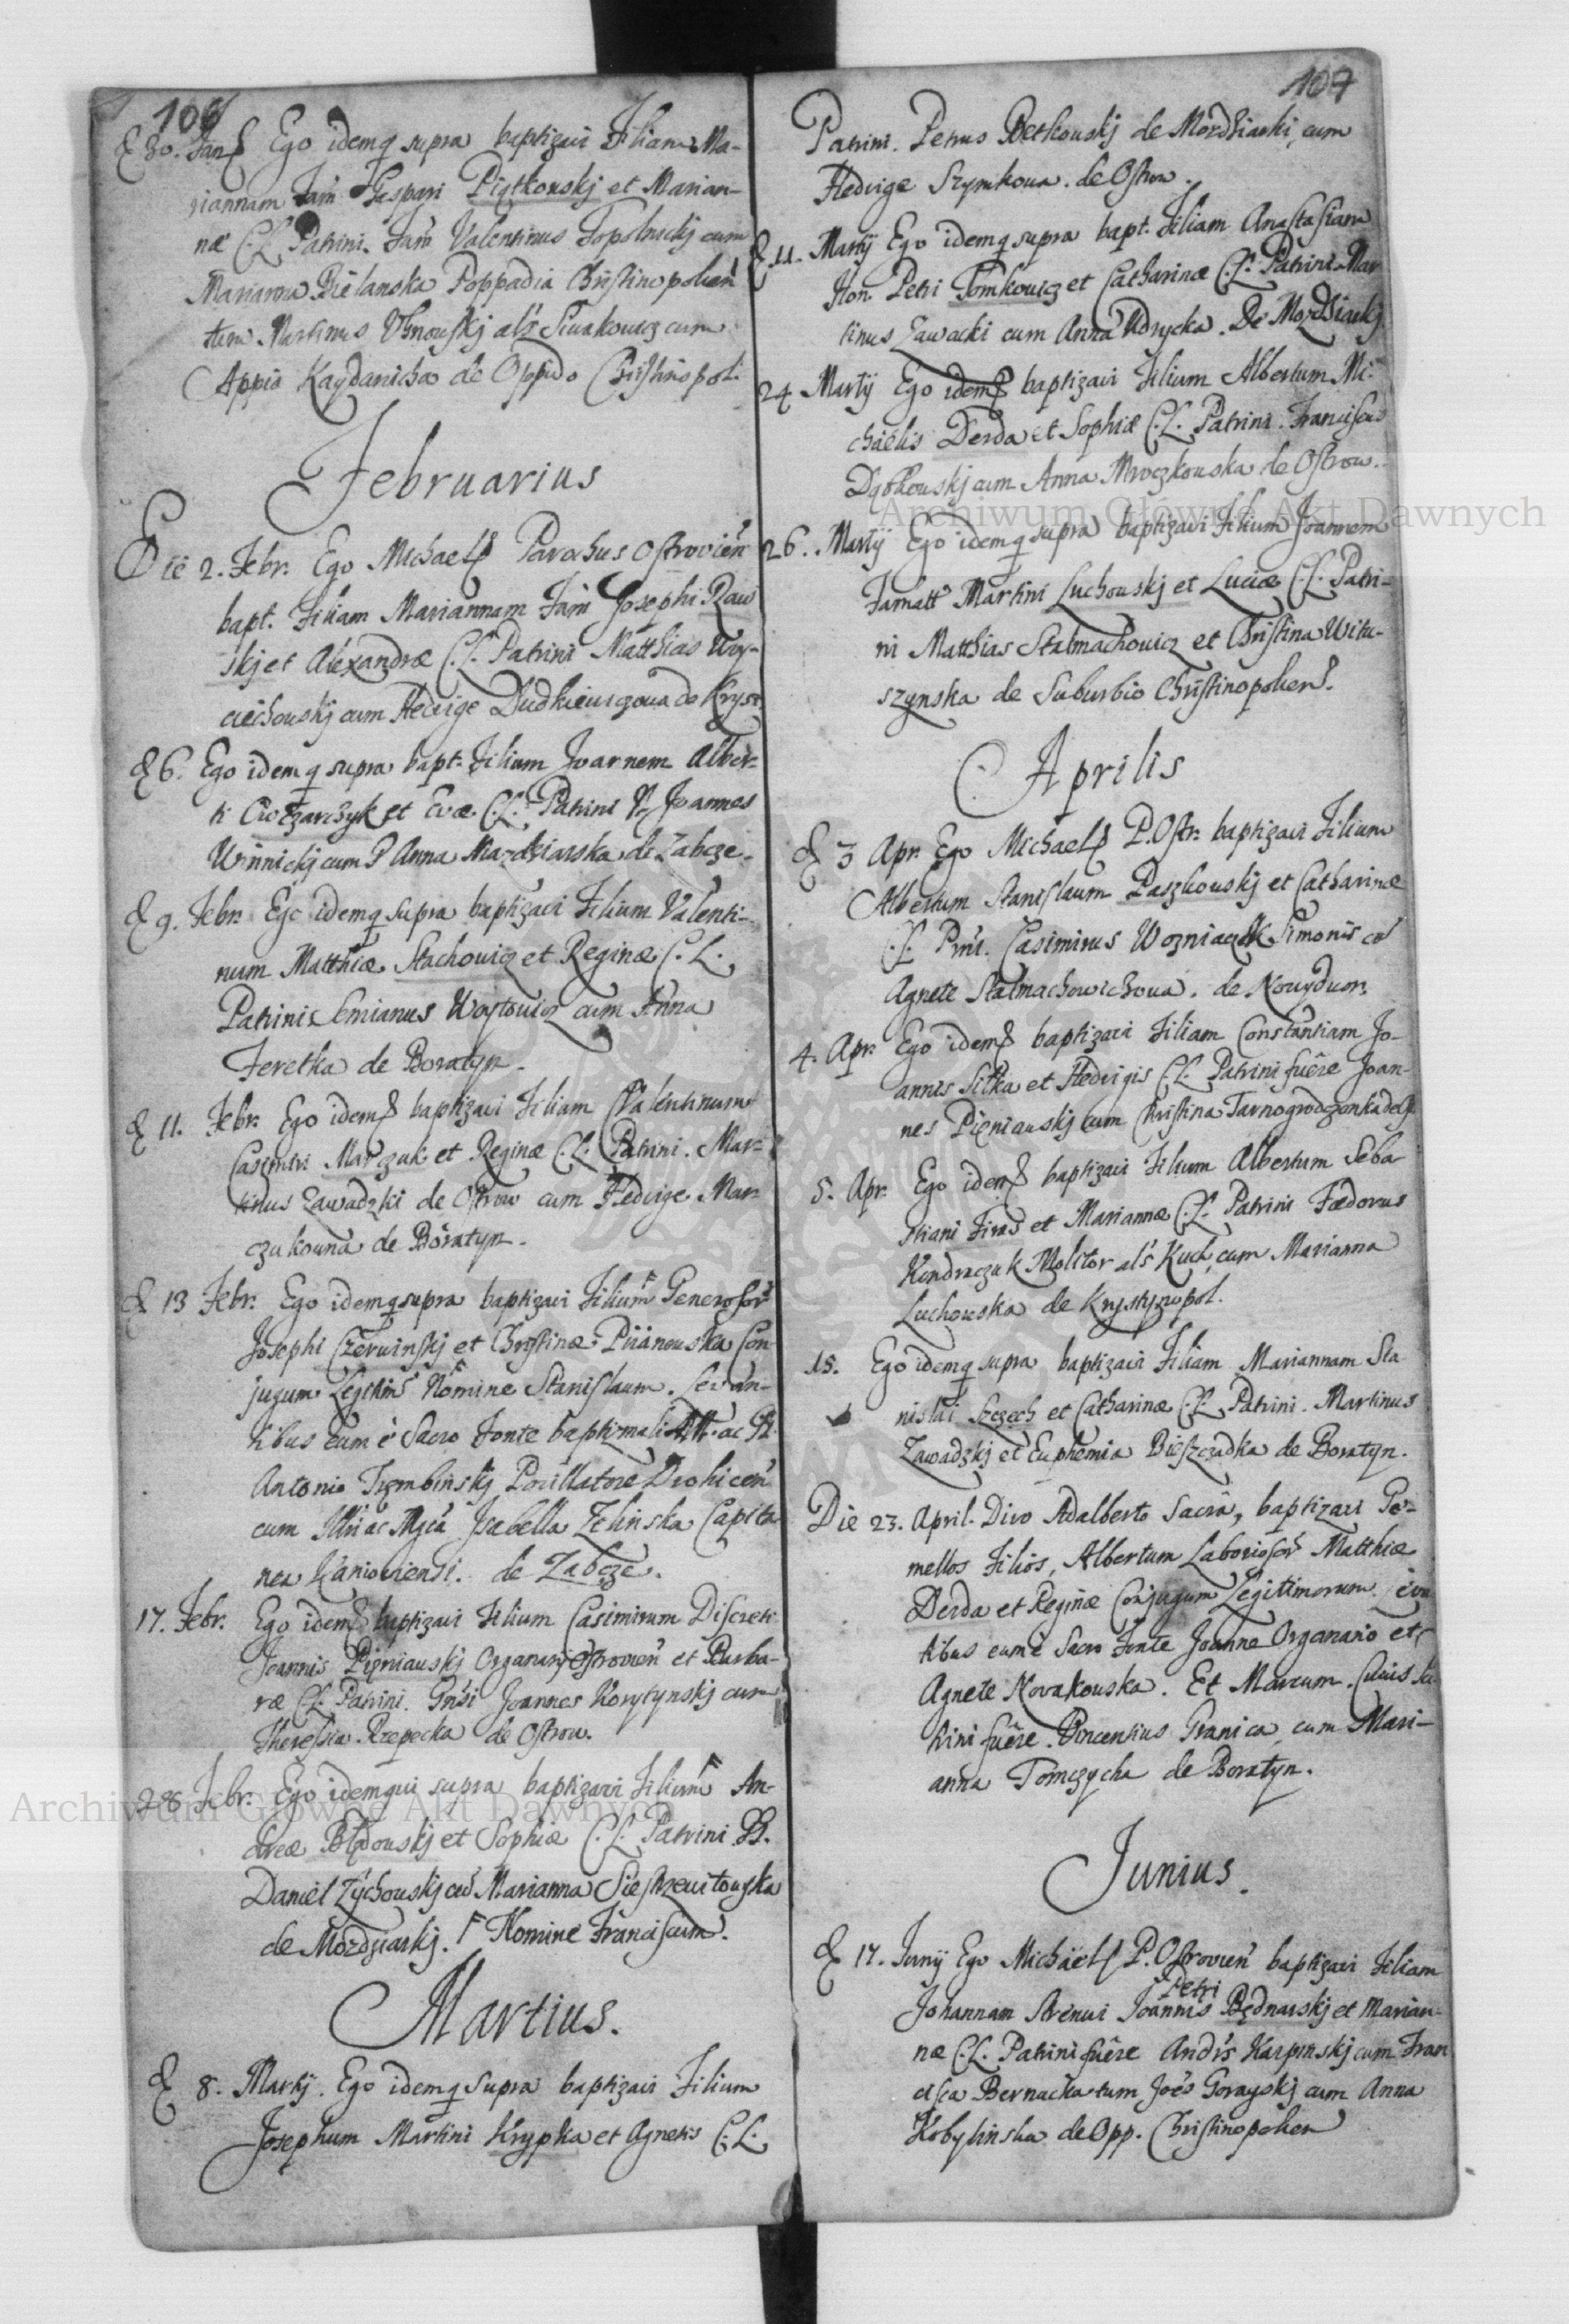 106
& 30. Jan. Ego idemq supra baptizavi Filiam Ma-
riannam Fam Gaspari Piątkowskj et Marian-
næ C.L. Patrini. Fam Valentinus Topolnickj cum
Marianna Bielanska Poppadia Christinopolien
tum Martinus Uhnouskj als Siwakowicz cum
Appia Kaydanicha de Oppido Christinopol.
Februarius
Die 2. Febr. Ego Michael Parochus Ostrovien
bapt. Filiam Mariannam Fam Josephi Raw
skj et Alexandræ C.L. Patrini Matthias Woy-
ciechouskj cum Hedvige Dudkiewiczowa de Kryst.
& 6. Ego idemq supra bapt. Filium Joannem Alber-
ti Owczarczyk et Evæ C.L. Patrini Joannes
Winnickj cum Anna Mozdziarska de Zabcze.
& 9. Febr. Ego idemq supra baptizavi Filium Valenti-
num Matthiæ Stachowicz et Reginæ C.L.
Patrini Semianus Woytowicz cum Anna
Feretka de Boratyn.
& 11. Febr. Ego idem baptizavi Filium Valentinum
Casimiri Marczuk et Reginæ C.L. Patrini. Mar-
tinus Zawadzki de Ostrow cum Hedvige Mar-
czukouna de Boratyn.
& 13 Febr. Ego idemq supra baptizavi Filium Generosor
Josephi Czerwinskj et Christinæ Piianouska Con
jugum Legitim Nomine Stanislaum. Levan-
tibus eum è Sacro Fonte baptizmali ac
Antonio Trembinskj Pocillatore Drohicen
cum Isabella Zelinska Capita
nea Kanioviensi. de Zabcze.
17. Febr. Ego idem baptizavi Filium Casimirum Discreti
Joannis Pieniauskj Organarij Ostrovien et Barba-
ræ C.L. Patrini. Gnsi Joannes Korytynskj cum
Theressia Rzepecka de Ostrow.
28 Febr. Ego idemqui supra baptizavi Filium An-
dreæ Błędouskj et Sophiæ C.L. Patrini
Daniel Zychouskj cum Marianna Siestrzewitowska
de Mozdziarkj. Nomine Franciscum.
Martius.
& 8. Martij. Ego idemq supra baptizavi Filium
Josephum Martini Krypka et Agnetis C.L.
107
Patrini. Petrus Betkouskj de Mozdziarki, cum
Hedvige Szymkowa. de Ostrow.
& 11. Martij Ego idemq supra bapt. Filiam Anastasiam
Hon. Petri Tomkowicz et Catharinæ C.L. Patrini Mar
tinus Zawacki cum Anna Udrycka. De Mozdziarkj
24 Martij Ego idem baptizavi Filium Albertum Mi-
chaelis Derda et Sophiæ C.L. Patrini. Franciscus
Dąbkouskj cum Anna Mroczkouska de Ostrow.
26. Martij Ego idemq supra baptizavi Filium Joannem
Famatt Martini Luchouskj et Luciæ C.L. Patri-
ni Matthias Stalmachowicz et Christina Witu-
szynska de Suburbio Christinopolien.
Aprilis
& 3 Apr. Ego Michael P. Ostr. baptizavi Filium
Albertum Stanislaum Paszkouskj et Catharinæ
C.L. Prni. Casimirus Wozniaczek Simonis cu
Agnete Stalmachowichowa. de Nowydwor.
4. Apr. Ego idem baptizavi Filiam Constantiam Jo-
annis Sitka et Hedvigis C.L. Patrini fuêre Joan-
nes Pieniauskj cum Christina Tarnogrodzonka
5. Apr. Ego idem baptizavi Filium Albertum Seba
stiani Firas et Mariannæ C.L. Patrini Fædorus
Kondraczuk Molitor als Kuch, cum Marianna
Luchouska de Krystynopol.
15. Ego idemq supra baptizavi Filiam Mariannam Sta
nislai Szczech et Catharinæ C.L. Patrini. Martinus
Zawadzkj et Euphemia Bieszczadka de Boratyn.
Die 23. April. Divo Adalberto Sacrâ, baptizavi Ge-
mellos Filios, Albertum Laboriosor Matthiæ
Derda et Reginæ Conjugum Legitimorum.
tibus eum è Sacro Fonte Joanne Organario et
Agnete Novakouska. Et Marcum. Cuius
trini fuêre. Vincentius Granica cum Mari-
anna Tomczycha de Boratyn.
Junius.
& 17. Junij Ego Michael P. Ostrovien baptizavi Filiam
Petri
Johannam Strenui Joannis Bednarskj et Marian-
næ C.L. Patrini fuêre Andrs Karpinskj cum Fran
cisca Bernacka tum Joës Gorayskj cum Anna
Kobylinska de Opp. Christinopolien
Archiwum Główne Akt Dawnych
Archiwum Główne Akt Dawnych